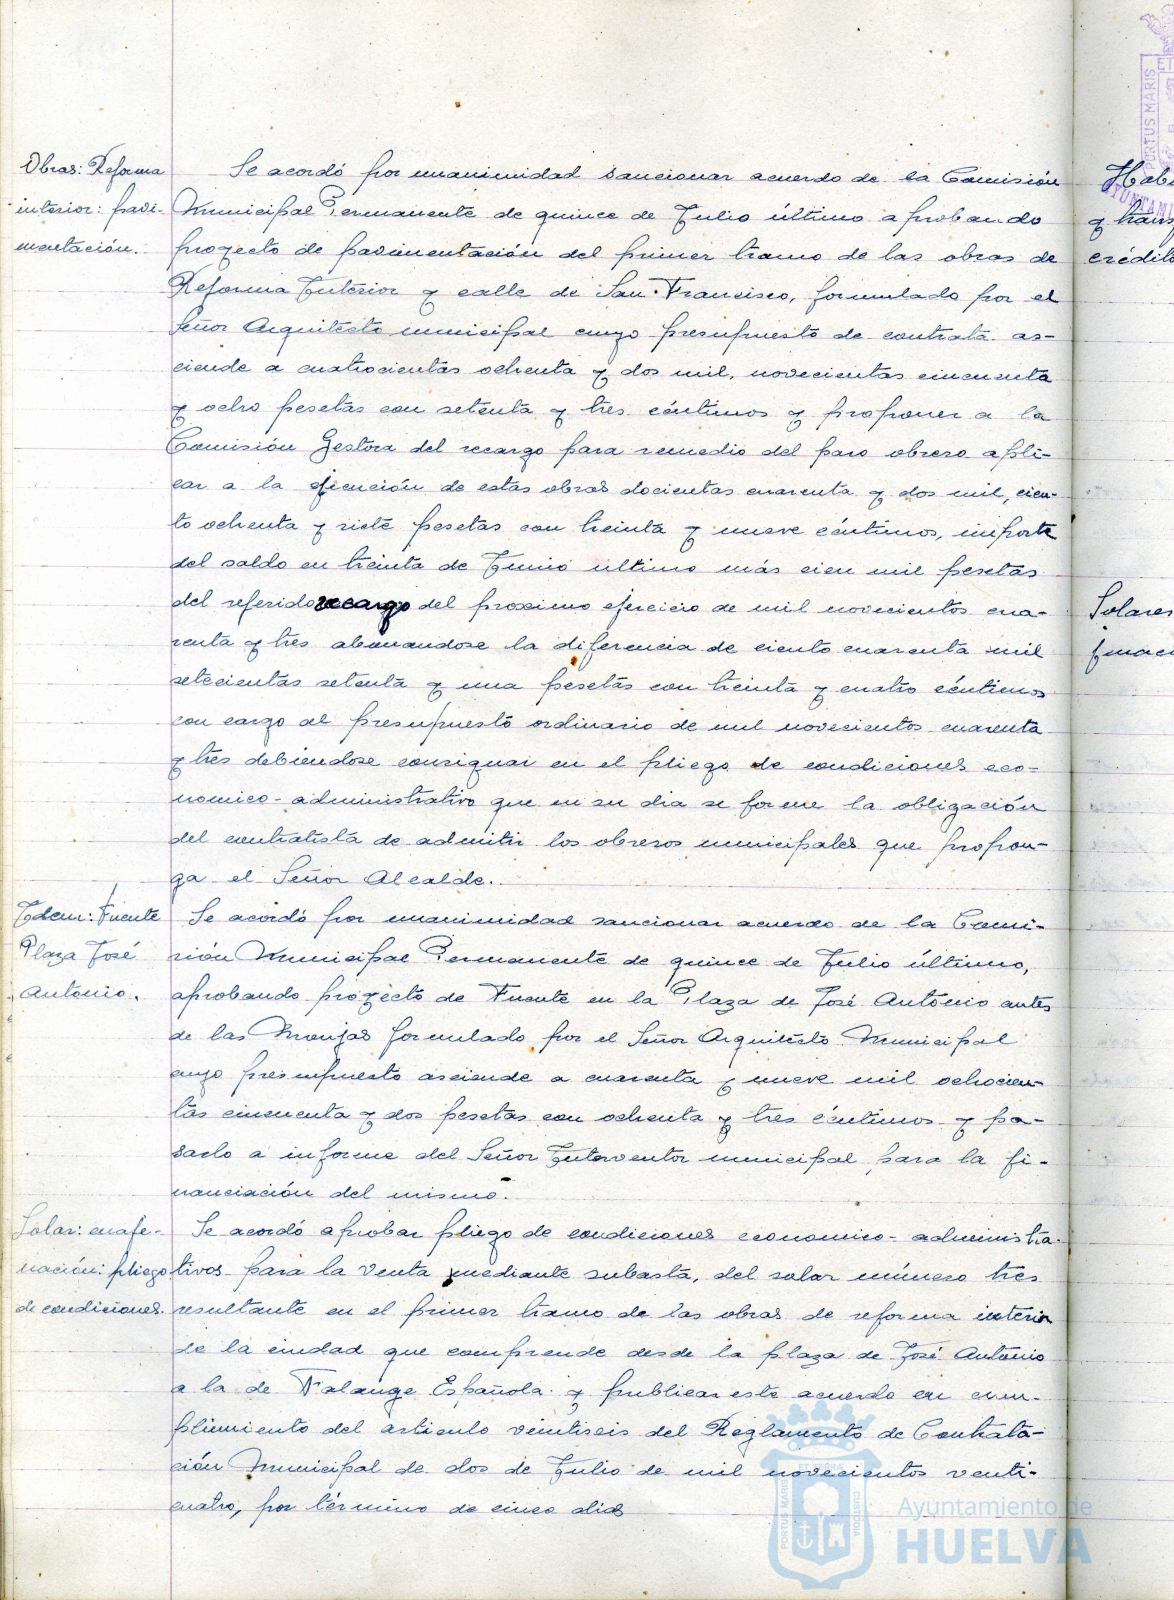 Obras: Reforma
interior: pavi-
mentación.
Se acordó por unanimidad sancionar acuerdo de la Comisión
Municipal Permanente de quince de Julio último aprobando
proyecto de pavimentación del primer tramo de las obras de
Reforma Interior y calle de San Francisco, formulado por el
Señor Arquitecto municipal cuyo presupuesto de contrata as-
ciende a cuatrocientas ochenta y dos mil, novecientas cincuenta
y ocho pesetas con setenta y tres céntimos y proponer a la
Comisión Gestora del recargo para remedio del paro obrero apli-
car a la ejecución de estas obras docientas cuarenta y dos mil, cien-
to ochenta y siete pesetas con treinta y nueve céntimos, importe
del saldo en treinta de Junio último más cien mil pesetas
del referido recargo del proximo ejercicio de mil novecientos cua-
renta y tres abonandose la diferencia de ciento cuarenta mil
setecientas setenta y una pesetas con treinta y cuatro céntimos
con cargo al presupuesto ordinario de mil novecientos cuarenta
y tres debiéndose consignar en el pliego de condiciones eco-
nomico-administrativo que en su dia se forme la obligación
del contratista de admitir los obreros municipales que propon-
ga el Señor Alcalde.
Idem: Fuente
Plaza José
Antonio.
Se acordó por unanimidad sancionar acuerdo de la Comi-
sión Municipal Permanente de quince de Julio último,
aprobando proyecto de Fuente en la Plaza de José Antonio antes
de las Monjas formulado por el Señor Arquitecto Municipal
cuyo presupuesto asciende a cuarenta y nueve mil ochocien-
tas cincuenta y dos pesetas con ochenta y tres céntimos y pa-
sarlo a informe del Señor Interventor municipal para la fi-
nanciación del mismo.
Solar: enaje-
nación: pliego
de condiciones.
Se acordó aprobar pliego de condiciones economico-administra-
tivos para la venta mediante subasta, del solar número tres
resultante en el primer tramo de las obras de reforma interior
de la ciudad que comprende desde la plaza de José Antonio
a la de Falange Española y publicar este acuerdo en cum-
plimiento del articulo veintiseis del Reglamento de Contrata-
ción Municipal de dos de Julio de mil novecientos venti-
cuatro, por término de cinco dias
crédito
Solares
PORTUS MARIS
Ayuntamiento de
HUELVA